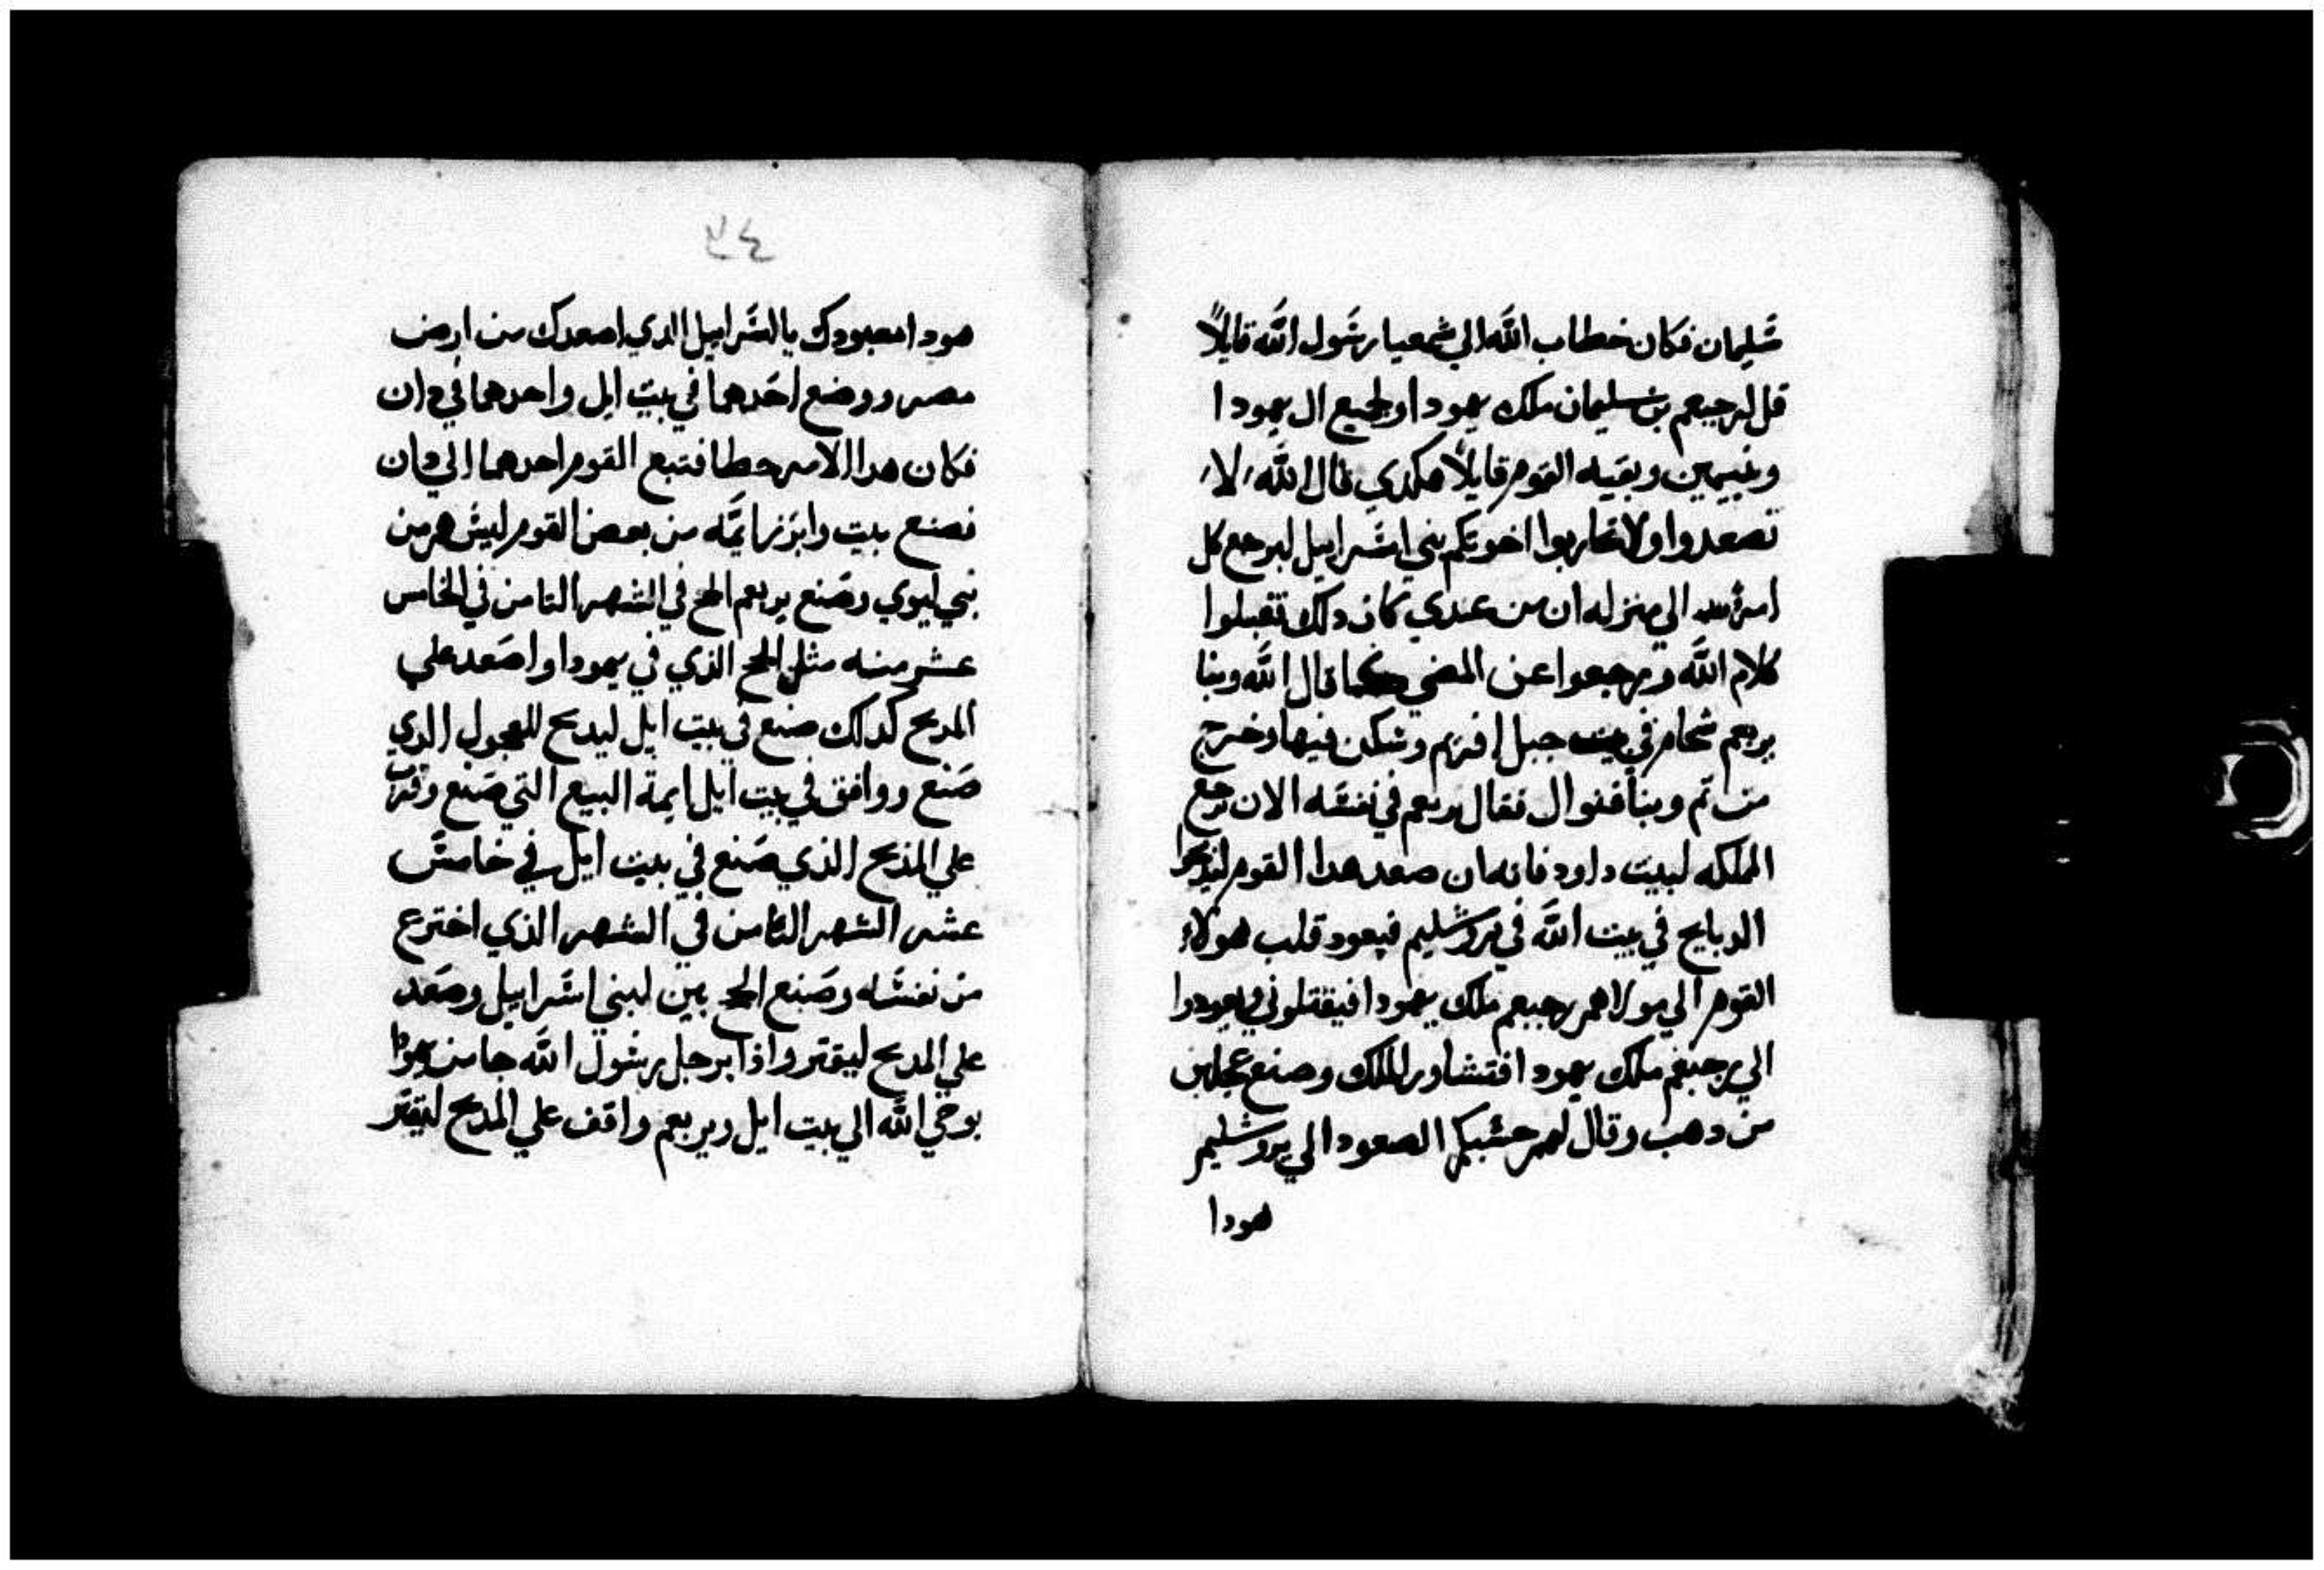 سَليمان فكان خطاب اللّه الي شمعيا رسَول اللّه قايلاً
قل لرحبعم بن سليمان ملك يهودا ولجميع ال يهودا
وبنيمين وبقيه القوم قايلاً هكدي قال اللّه لا
تصعدوا ولا تحاربوا اخوتكم بني اسَرابيل ليرجع كل
امرء الي منزله ان من عندي كان دلك تقبلوا
كلام اللّه ويرجعوا عن المضي كما قال اللّه وبنا
يربعم شحام في بيت جبل افريم وسَكن فيها وخرج
من تم وبنا فنوال فقال يربعم في نفسَه الان ترجع
المملكه لبيت داود فانه ان صعد هدا القوم ليدبحوا
الدبايح في بيت اللّه في يروشليم فيعود قلب هولاء
القوم الي مولاهم رحبعم ملك يهودا فيقتلوني ويعودوا
الي رحبعم ملك يهودا فتشاور الملك وصنع عجلين
من دهب وقال لهم حسَبكم الصعود الي يروشليم
هودا
٣٤
هودا معبودك يال اسَراييل الدي اصعدك من ارض
مصر ووضع احَدهما في بيت ايل واحدهما في دان
فكان هدا الامر خطا فتبع القوم احدهما الي دان
فصنع بيت وابرز ايمَّه من بعض القوم ليسَ هم من
بني ليوي وصَنع يربعم الحج في الشهر التامن في الخامس
عشر منه مثل الحج الذي في يهودا واصَعد علي
المدبح كدلك صنع في بيت ايل ليدبح للعجول الدي
صَنع ووافق في بيت ايل ايمة البيع التي صَنع وقرّب
علي المذبح الذي صَنع في بيت ايل في خامسَ
عشر الشهر التامن في الشهر الذي اخترع
من نفسَه وصَنع الحج بين لبني اسَراييل وصَعد
علي المدبح ليقتر واذا برجل رسَول اللّه جا من يهودا
بوحي اللّه الي بيت ايل ويربعم واقف علي المدبح ليقتر